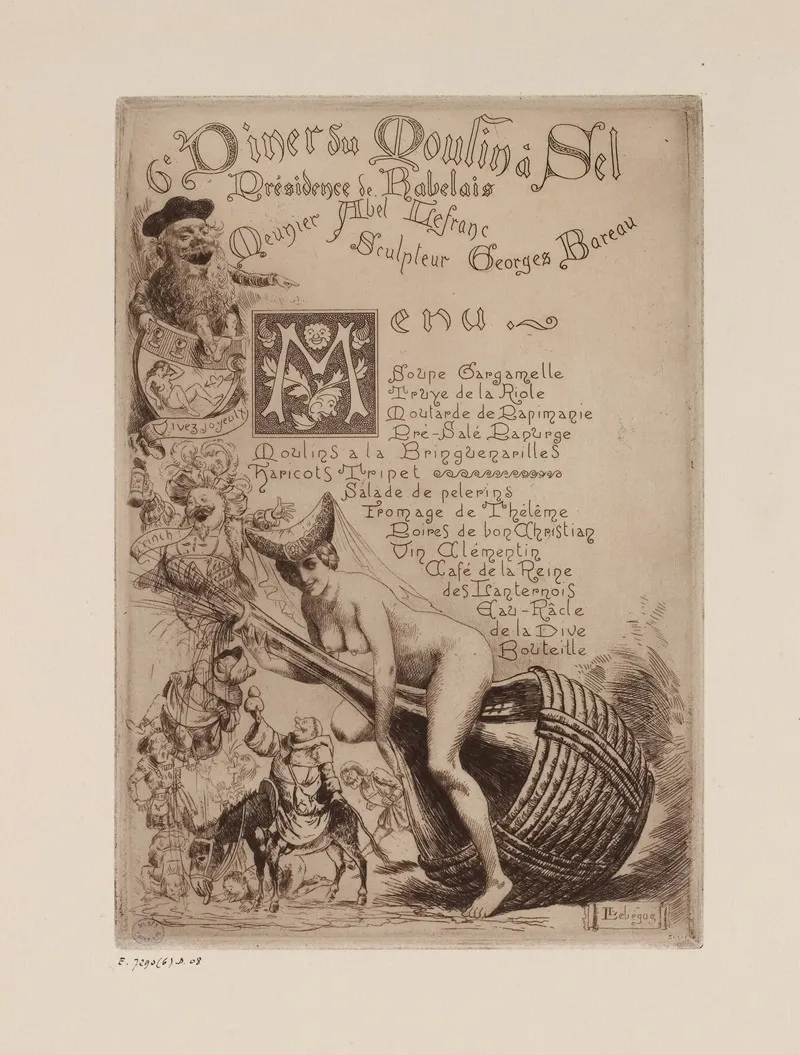 6e Diner du Moulin à Sel
Présidence de Rabelais
Meunier Abel Lefranc
Sculpteur Georges Bareau
Menu
Soupe Gargamelle
Truye de la Riole
Moutarde de Papimanie
Pré-Salé Panurge
Moulins a la Bringuenarilles
Haricots Tripet
Salade de pelerins
Fromage de Thélème
Poires de bon Christian
Vin Clémentin
Café de la Reine
des Lanternois
Eau-Râcle
de la Dive
Bouteille
Vivez Joyeulx
Trinch
Lebègue
E. 7290(6) D. 08